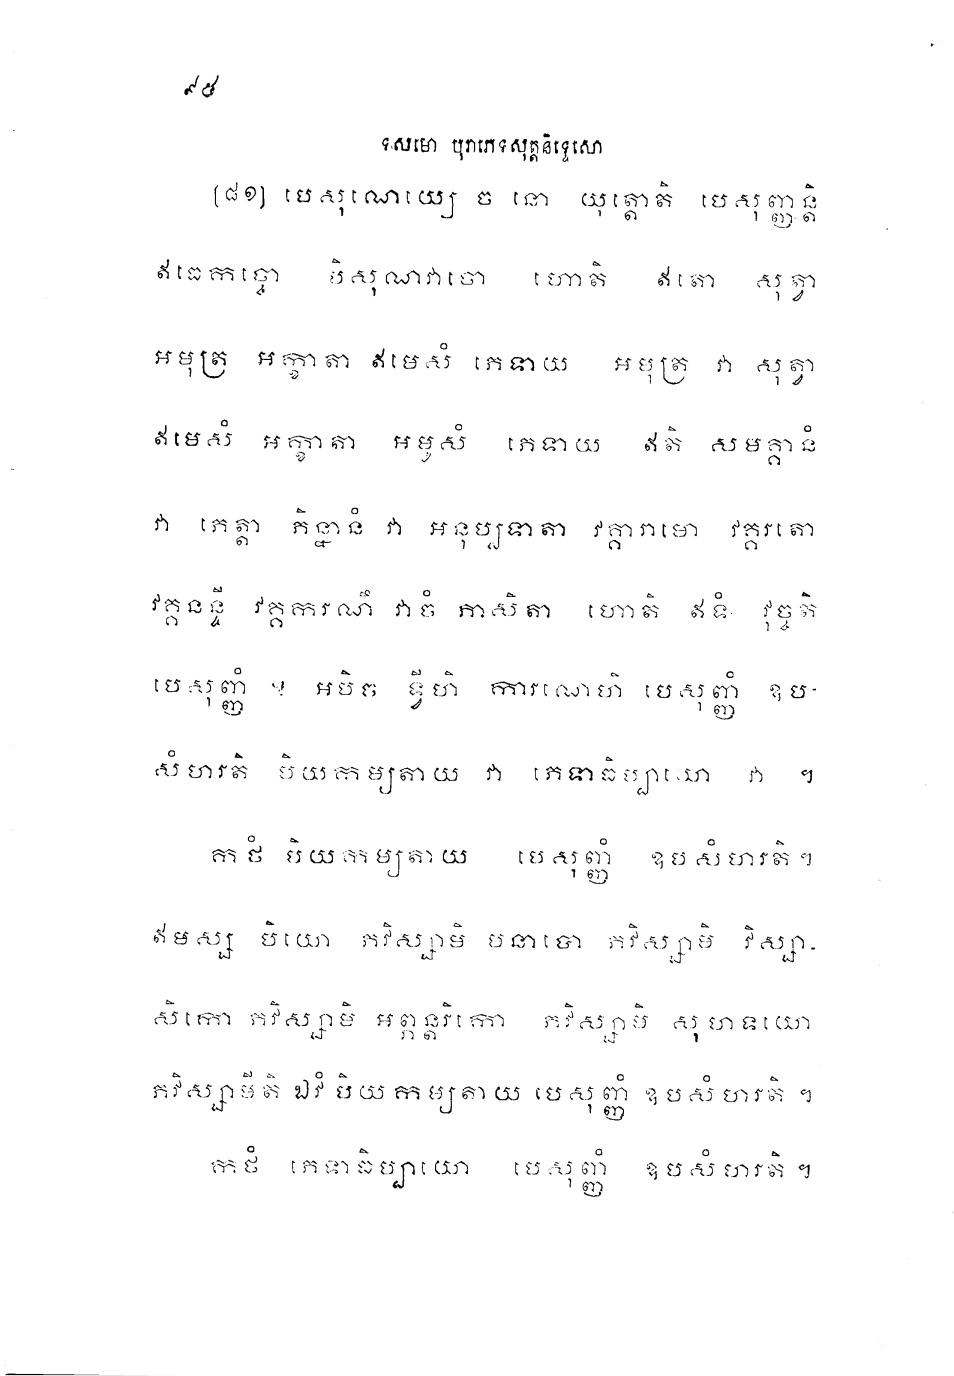 ៩៥
ទសមោ បុរាភេទសុត្តនិទ្ទេសោ
[៨១] បេសុណេយ្យេ ច នោ យុត្តោតិ បេសុញ្ញន្តិ
ឥធេកច្ចោ បិសុណាវាចោ ហោតិ ឥតោ សុត្វា
អមុត្រ អក្ខាតា ឥមេសំ ភេទាយ អមុត្រ វា សុត្វា
ឥមេសំ អក្ខាតា អមូសំ ភេទាយ ឥតិ សមគ្គានំ
វា ភេត្តា ភិន្នានំ វា អនុប្បទាតា វគ្គារាមោ វគ្គរតោ
វគ្គនន្ទី វគ្គករណឹ វាចំ ភាសិតា ហោតិ ឥទំ វុច្ចតិ
បេសុញ្ញំ ។ អបិច ទ្វីហិ ការណេហិ បេសុញ្ញំ ឧប-
សំហរតិ បិយកម្យតាយ វា ភេទាធិប្បាយោ វា ។
កថំ បិយកម្យតាយ បេសុញ្ញំ ឧបសំហរតិ ។
ឥមស្ស បិយោ ភវិស្សាមិ មនាបោ ភវិស្សាមិ វិស្សា-
សិកោ ភវិស្សាមិ អព្ភន្តរិកោ ភវិស្សាមិ សុហទយោ
ភវិស្សាមីតិ ឯវំ បិយកម្យតាយ បេសុញ្ញំ ឧបសំហរតិ ។
កថំ ភេទាធិប្បាយោ បេសុញ្ញំ ឧបសំហរតិ ។